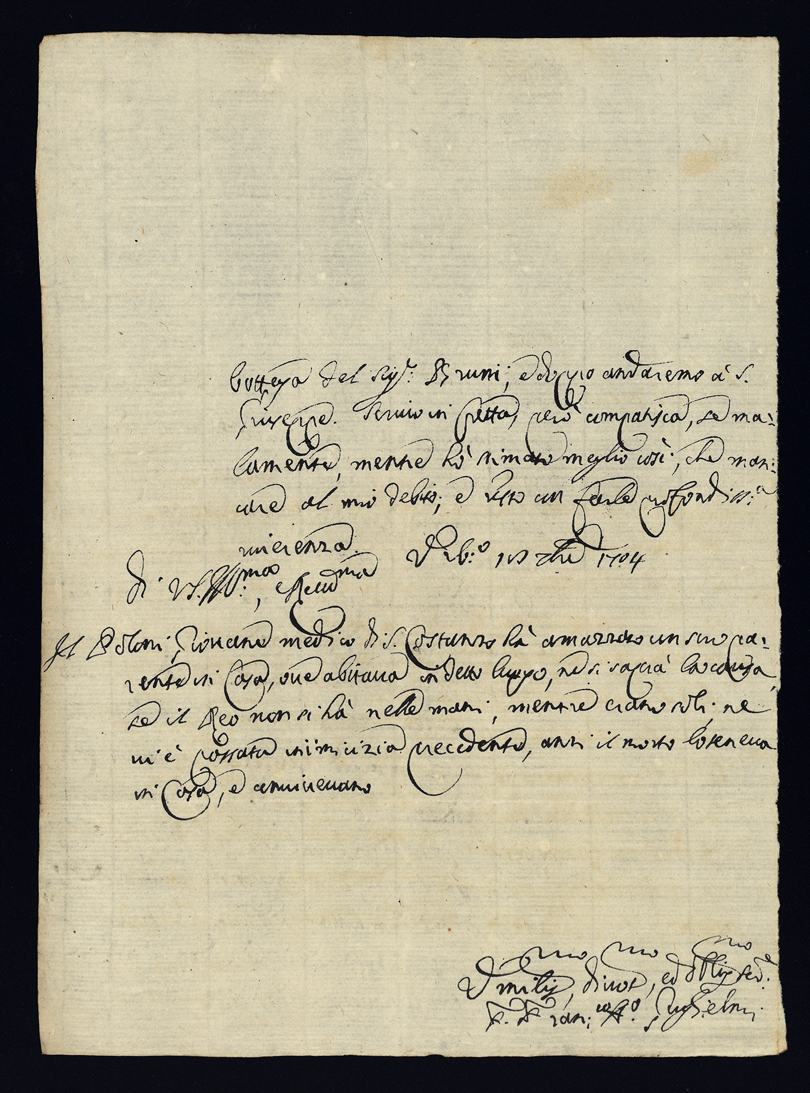 bottega del Sig.r Bruni, e doppo andaremo à S.
Giuseppe. Scrivo in fretta, però compatisca, se ma-
lamente, mentre hò stimato meglio così, che man-
care al mio debito; e resto con farle profondiss.a
riverenza. Urb.o 1704
di V.S. Ill.ma, e Rev.ma
Il Poloni Giovane medico di S. Costanzo hà amazzato un suo pa-
rente in Casa, ove abitava in detto luogo, nè si saprà la causa,
se il Reo non si hà nelle mani, mentre erano soli, ne
vi è passata inimicizia precedente, anzi il morto lo teneva
in Casa, e convivevano
Umiliss.mo, divot.mo, ed obligat.mo ser.e
F. Fran.co Guglielmi